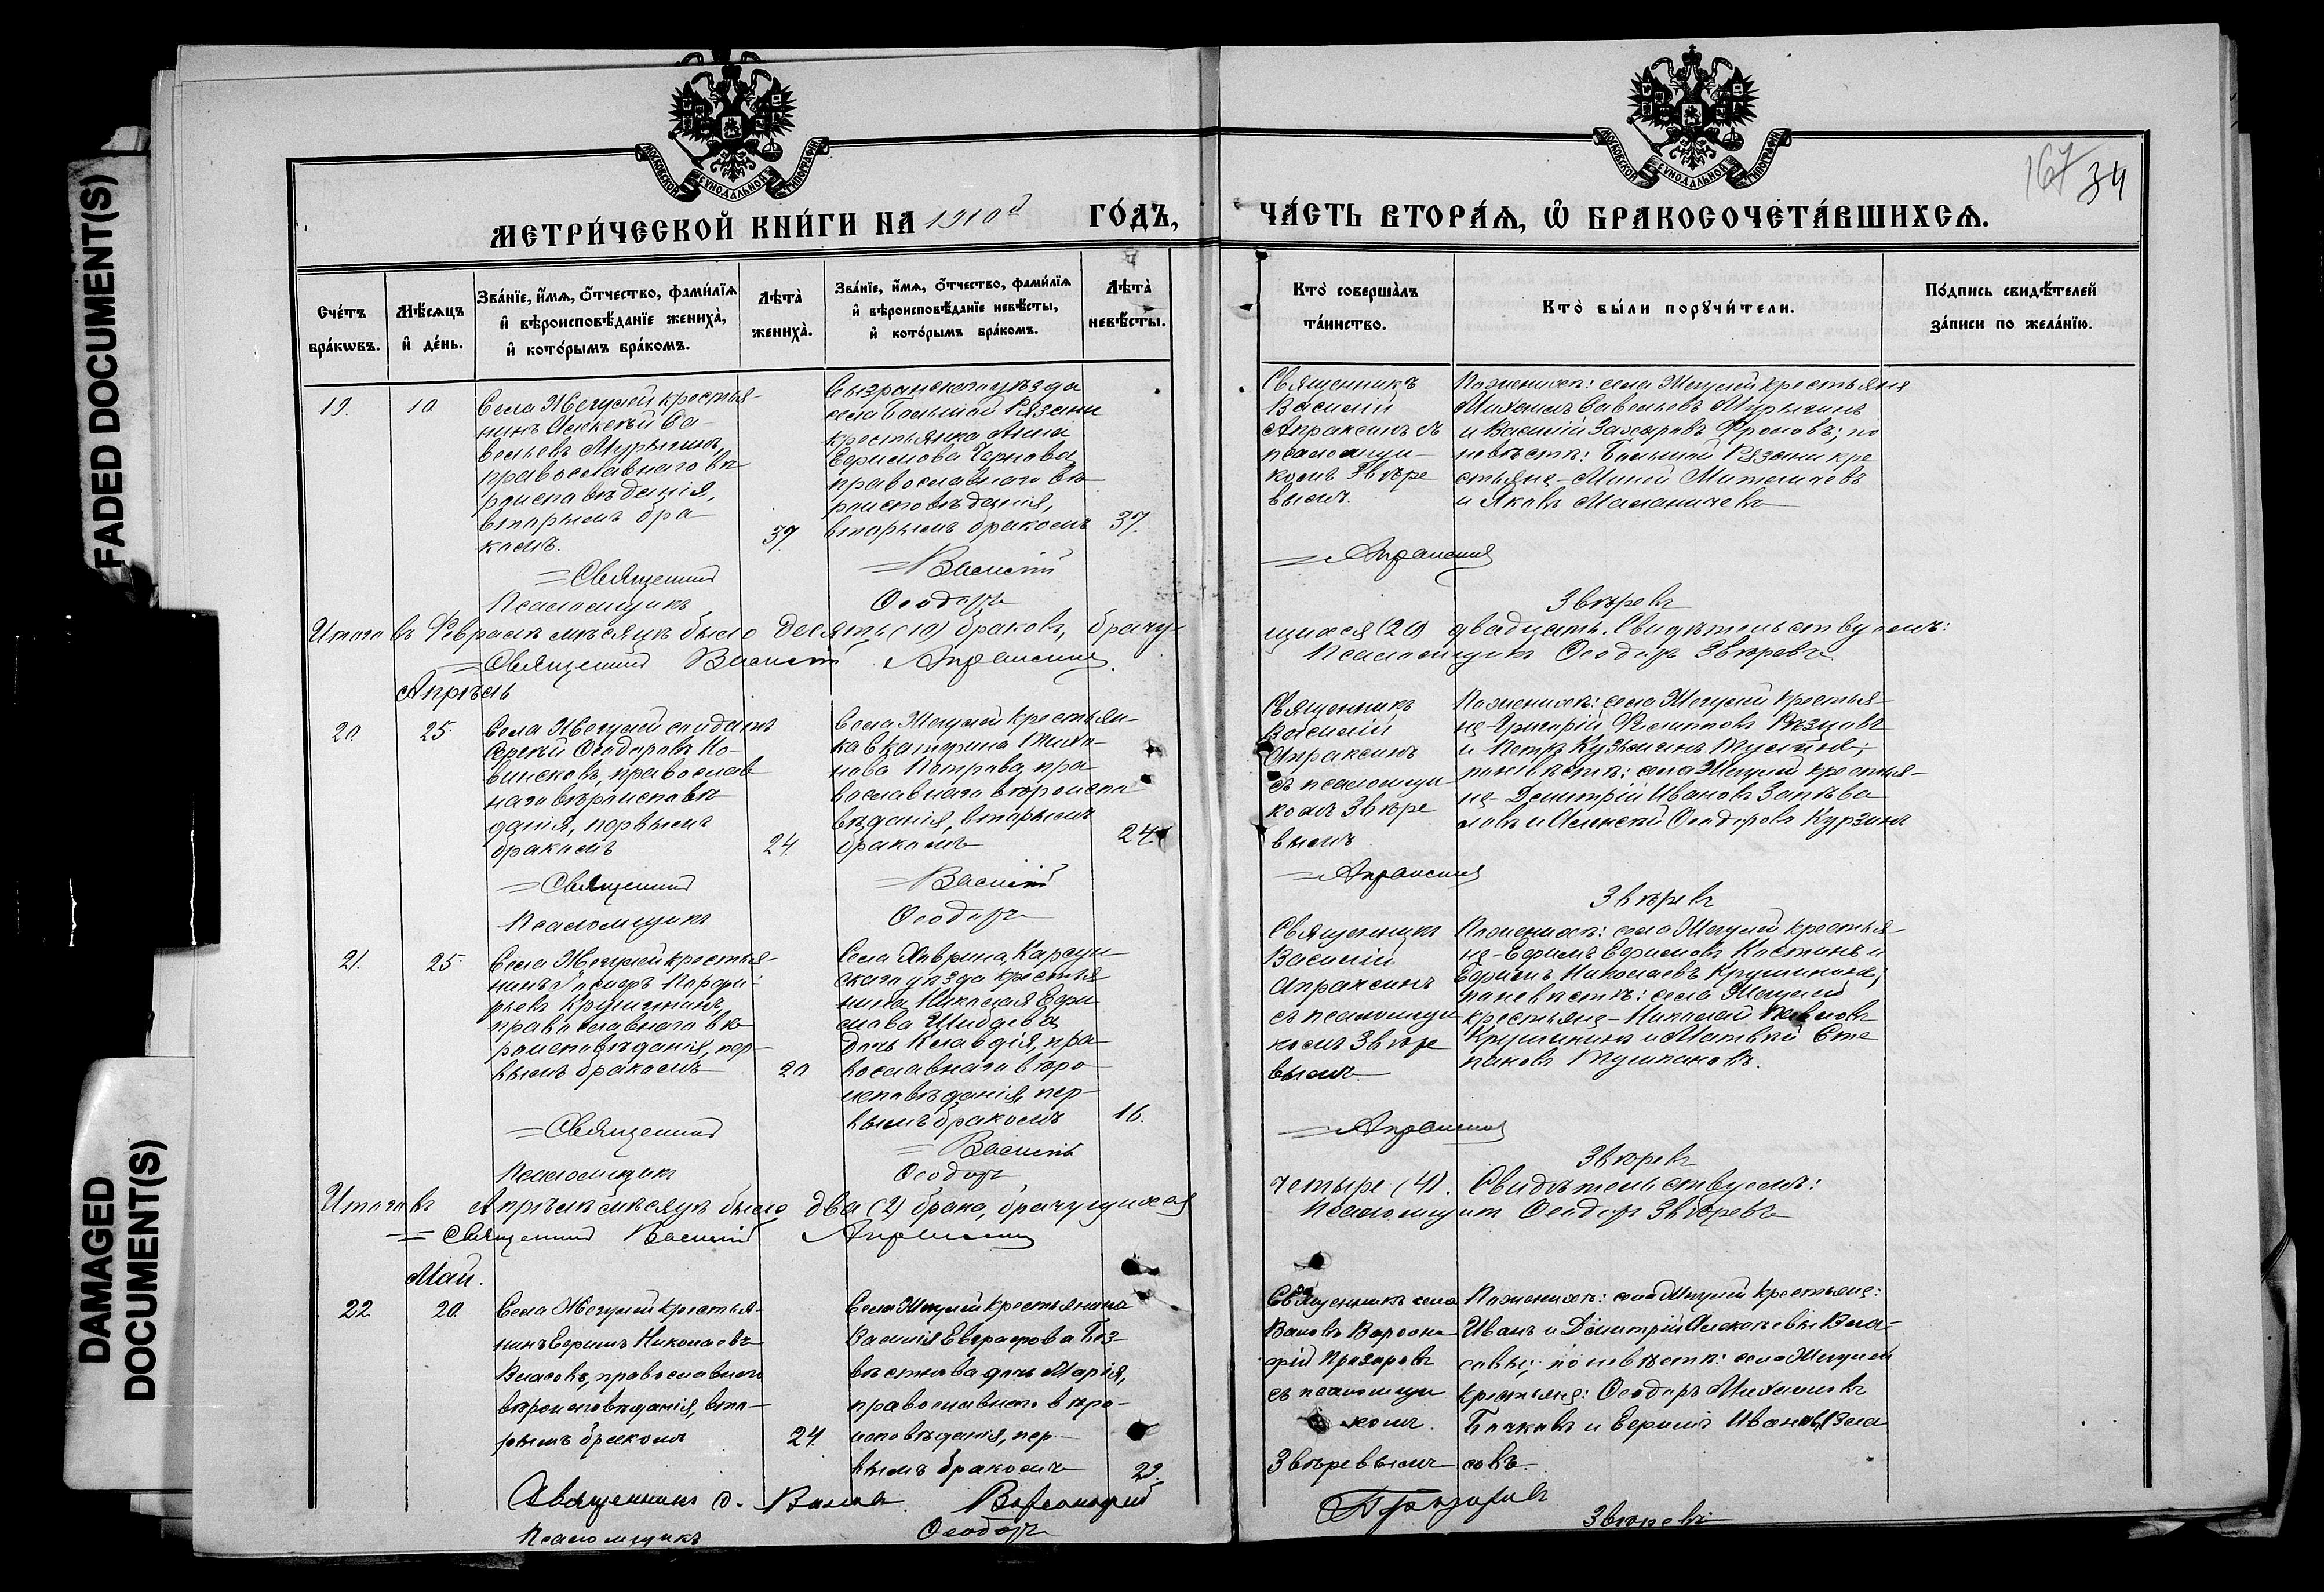 FADED DOCUMENT(S)
DAMAGED
DOCUMENT(S)
МОСКОВСКОЙ СѴНОДАЛЬНОЙ ТИПОГРАФІИ
МЕТРИ́ЧЕСКОЙ КНИ́ГИ НА 1910й ГО́ДЪ,
Сче́тъ
бра́кѡвъ.
Мѣ́сяцъ
и҆ де́нь.
Зва́нїе, и҆́мѧ, ѻ҆́тчество, фами́лїѧ
и҆ вѣроисповѣ́данїе жениха̀,
и҆ кото́рымъ бра́комъ.
Лѣта̀
жениха̀.
Зва́нїе, и҆́мѧ, ѻ҆́тчество, фами́лїѧ
и҆ вѣроисповѣ́данїе невѣ́сты,
и҆ кото́рымъ бра́комъ.
Лѣта̀
невѣ́сты.
19.
10
Села Жегулей крестья-
нинъ Алексѣй Са-
вельевъ Мурыгинъ,
православнаго вѣ-
роисповѣданія,
вторымъ бра-
комъ.
39.
Сызранскаго уѣзда
села Большой Рязани
крестьянка Анна
Ефимова Чернова,
православнаго вѣ-
роисповѣданія,
вторымъ бракомъ
37.
Священникъ Василій
Псаломщикъ Ѳеодоръ
Итого въ Февралѣ мѣсяцѣ было десять (10) браковъ, брачу-
Священникъ Василій Апраксинъ.
Апрѣль
20
25.
Села Жегулей солдатъ
Сергѣй Ѳеодоровъ
православ
наго вѣроисповѣ
данія, первымъ
бракомъ
24.
Села Жегулей крестьян-
ка Екатерина Тихо-
нова Петрова, пра-
вославнаго вѣроиспо
вѣданія, вторымъ
бракомъ
24
Священникъ Василій
Псаломщикъ Ѳеодоръ
21.
25.
Села Жегулей крестья-
нинъ Порфи-
рьевъ Крушинкинъ,
православнаго вѣ-
роисповѣданія, пер-
вымъ бракомъ
20
Села Хаврина, Карсун-
скаго уѣзда крестья-
нина Николая Ефи-
мова
дочь Клавдія, пра-
вославнаго вѣро-
исповѣданія, пер-
вымъ бракомъ
16.
Священникъ Василій
Псаломщикъ Ѳеодоръ
Итого въ Апрѣлѣ мѣсяцѣ было два (2) брака, брачущихся
Священникъ Василій Апраксинъ
Май.
22
20.
Села Жегулей крестья-
нинъ Ефимъ Николаевъ
Власовъ, православнаго
вѣроисповѣданія, вто-
рымъ бракомъ
24.
Села Жегулей крестьянина
Василія Евграфова Без-
вѣстнова дочь Марія,
православнаго вѣро-
исповѣданія, пер-
вымъ бракомъ
22.
Священникъ с. Варсонофій
Псаломщикъ Ѳеодоръ
МОСКОВСКОЙ СѴНОДАЛЬНОЙ ТИПОГРАФІИ
167 34
ЧА́СТЬ ВТОРА́Ѧ, Ѡ҆ БРАКОСОЧЕТА́ВШИХСѦ.
Кто̀ соверша́лъ
та́инство.
Кто̀ бы́ли порꙋчи́тели.
По́дпись свидѣ́телей
за́писи по жела́нїю.
Священникъ
Василій
Апраксинъ съ
псаломщи-
комъ Звѣре
вымъ.
По женихѣ: села Жегулей крестьяня
Михаилъ Савельевъ Мурыгинъ
и Василій Захаровъ Фроловъ; по
невѣстѣ: Большой Рязани кре
стьяне - Миней
и Яковъ
Апраксинъ
Звѣревъ
щихся (20) двадцать. Свидѣтельствуемъ:
Псаломщикъ Ѳеодоръ Звѣревъ
Священникъ
Василій
Апраксинъ
съ псаломщи
комъ Звѣре
вымъ
По женихѣ: села Жегулей крестья-
не - Григорій
и Петръ Кузьминъ
по невѣстѣ: села Жегулей крестья-
не - Димитрій Ивановъ Запѣва
ловъ и Алексѣй Ѳеодоровъ Курзинъ
Апраксинъ
Звѣревъ
Священникъ
Василій
Апраксинъ
съ псаломщи
комъ Звѣре
вымъ
По женихѣ: села Жегулей крестья-
не - Ефимъ Ефимовъ Костинъ и
Ефимъ Николаевъ Крушинкинъ;
по невѣстѣ: села Жегулей
крестьяне - Николай Павловъ
Крушинкинъ и Матвѣй Сте
пановъ Тушкановъ.
Апраксинъ
Звѣревъ
четыре (4). Свидѣтельствуемъ:
Псаломщикъ Ѳеодоръ Звѣревъ
Священникъ села
Варсоно
фій
съ псаломщи
комъ
Звѣревымъ
По женихѣ: села Жегулей крестьяне:
Иванъ и Димитрій Алексѣевы Вла-
совы; по невѣстѣ: села Жегулей
крестьяне: Ѳеодоръ Михайловъ
и Ефимъ Ивановъ Вла
совъ.
Звѣревъ